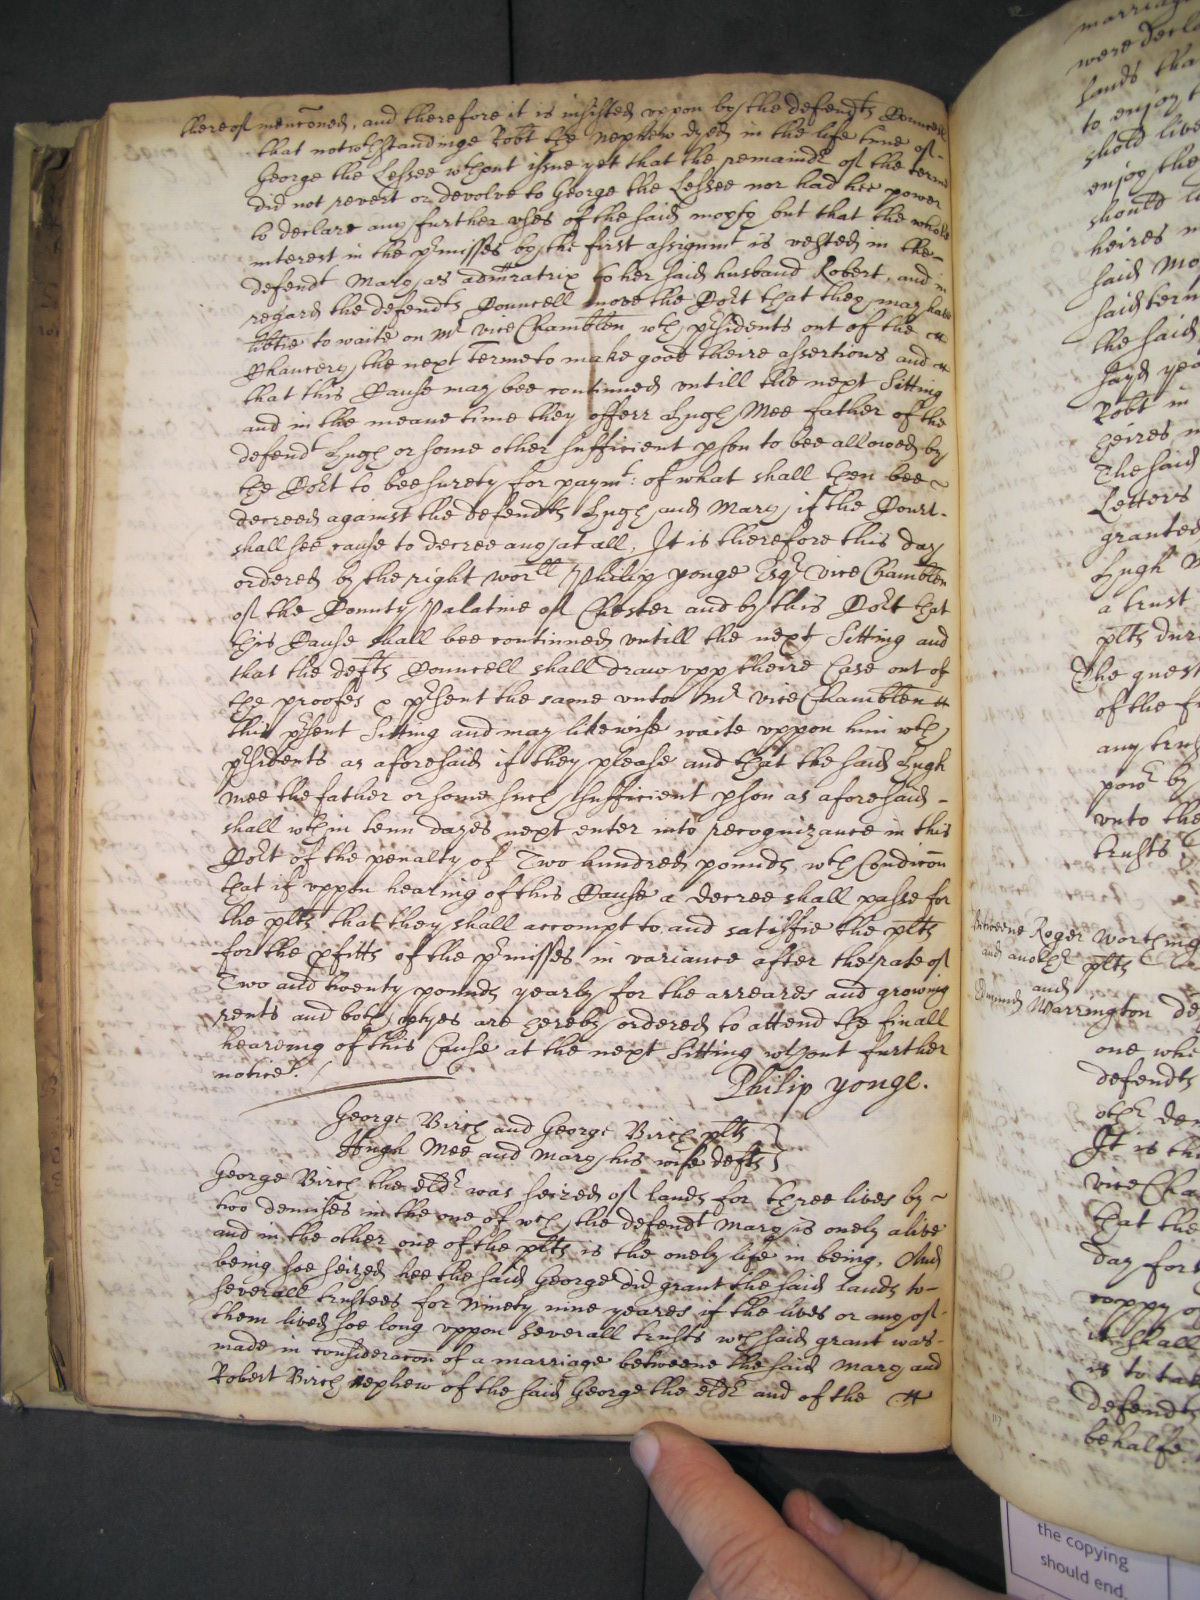 thereof menconed, and therefore it is insisted vppon by the defendts Councell
that notwthstandinge Robt the Nephew dyed in the life time of
George the Lessee wthout issue yet that the remaindr of the terme
did not revert or devolve to George the Lessee nor had hee power
to declare any further vses of the said moyty but that the whole
interest in the prmisses by the first assignmt is vested in the
defendt Mary as admratrix to her said husband Robert, and in
regard the defendts Councell move the Cort that they may have
libtie to waite on Mr vice Chamblen wth prsidents out of the
Chancery the next terme to make good theire assertions and
that this Cause may bee continued vntill the next Sitting
and in the meane time they offerr Hugh Mee father of the
defendt Hugh or some other sufficient pson to bee allowed by
the Cort to bee surety for paymt: of what shall then bee
decreed against the defendts Hugh and Mary if the Court
shall see cause to decree any at all, It is therefore this day
ordered by the right worll Philip yonge Esqr vice Chamblen
of the County Palatine of Chester and by this Cort that
this Cause shall bee continued vntill the next Sitting and
that the defts Councell shall draw vpp theire Case out of
the proofes & prsent the same vnto Mr vice Chamblen
this prsent Sitting and may likewise waite vppon him wth
prsidents as aforesaid if they please and that the said Hugh
Mee the father or some such sufficient pson as aforesaid
shall wthin tenn dayes next enter into recognizance in this
Cort of the penalty of Two hundred pounds wth Condicon
that if vppon hearing of this Cause a decree shall passe for
the plts that they shall accompt to and satisfie the plts
for the pfitts of the prmisses in variance after the rate of
Two and twenty pounds yearly for the arreares and growing
rents and both ptyes are hereby ordered to attend the finall
heareing of this Cause at the next Sitting wthout further
notice.
Philip yonge.
George Birch and George Birch plts
Hugh Mee and Mary his wife defts
George Birch the eldr was seized of lands for three lives by
two demises in the one of wch the defendt Mary is onely alive
and in the other one of the plts is the onely life in being, And
being soe seized hee the said George did grant the said lands to
severall trustees for Ninety nine yeares if the lives or any of
them lived soe long vppon severall trusts wch said grant was
made in consideracon of a marriage betweene the said Mary and
Robert Birch nephew of the said George the eldr and of the
were decla
lands tha
to enjoy t
enjoy the
should li
heires m
said Mo
said term
the said
sayd yea
Robt in
heires m
The said
Letters
granted
Hugh M
a trust
plts dur
The quest
of the f
any trus
powr by
vnto the
trusts
Betweene Roger Worthing
and anothr plts
and
Edmund Warrington de
one whi
defendts
othr de
It is th
vice Cha
that the
day for
coppy o
it shall
is to tak
defendts
behalfe
the copying
should end.